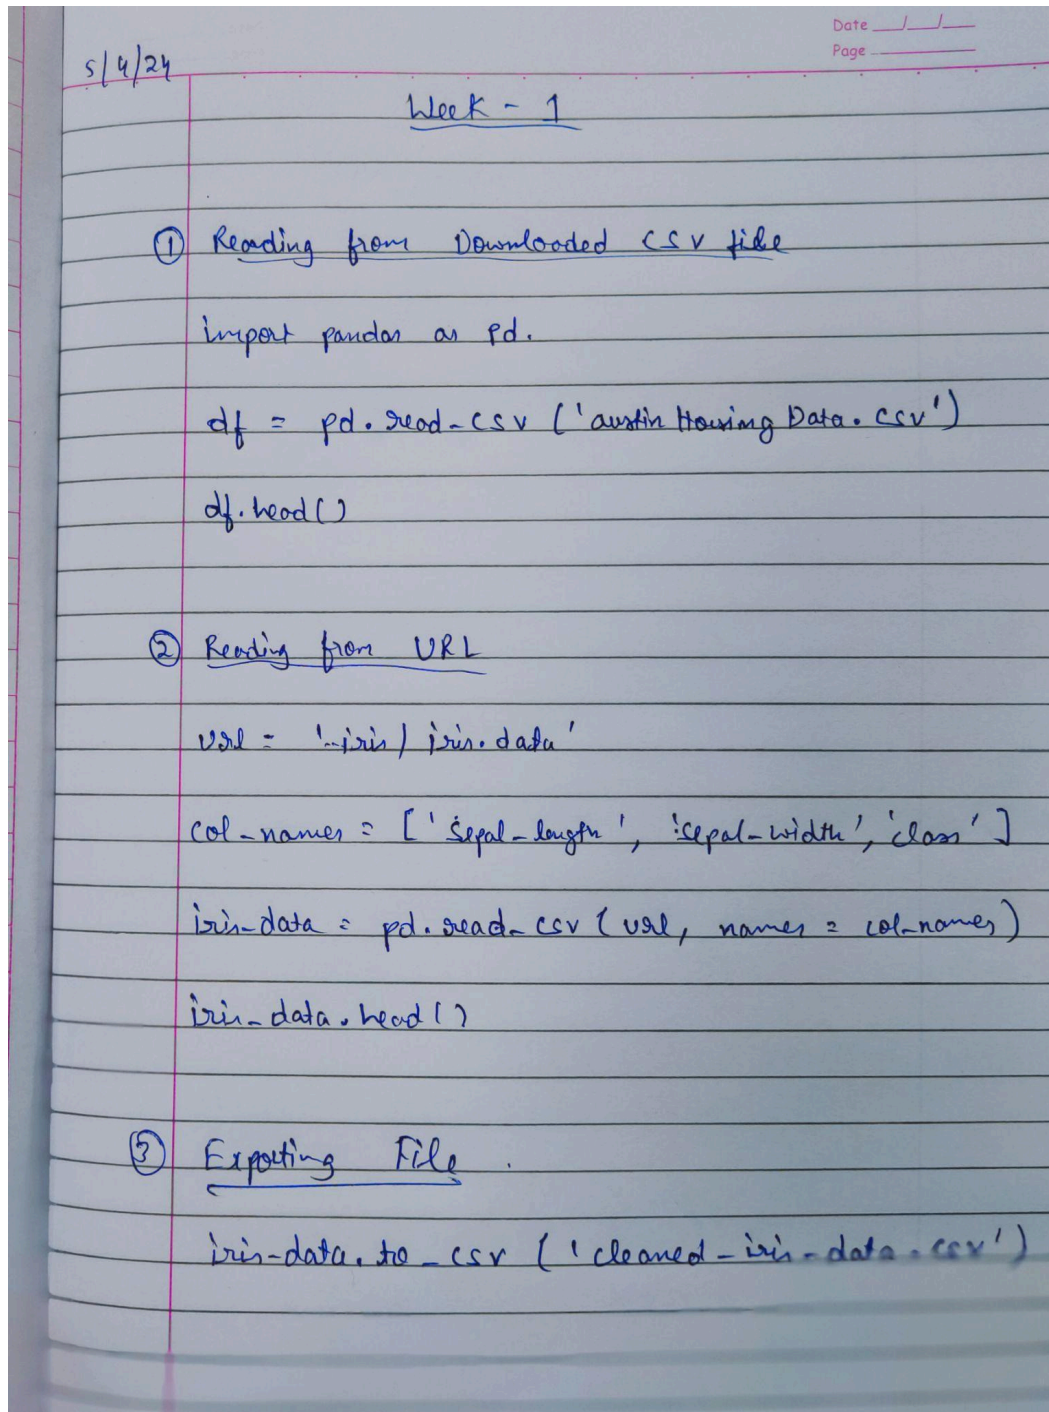 Date __/__/__
Page ______
5/4/24
Week - 1
① Reading from Downloaded CSV file
import pandas as pd.
df = pd.read_csv ('austin Housing Data.csv')
df.head()
② Reading from URL
url = '--iris/iris.data'
col_names = ['sepal_length', 'sepal_width', 'class']
iris_data = pd.read_csv (url, names = col_names)
iris_data.head()
③ Exporting File.
iris_data.to_csv ('cleaned_iris_data.csv')